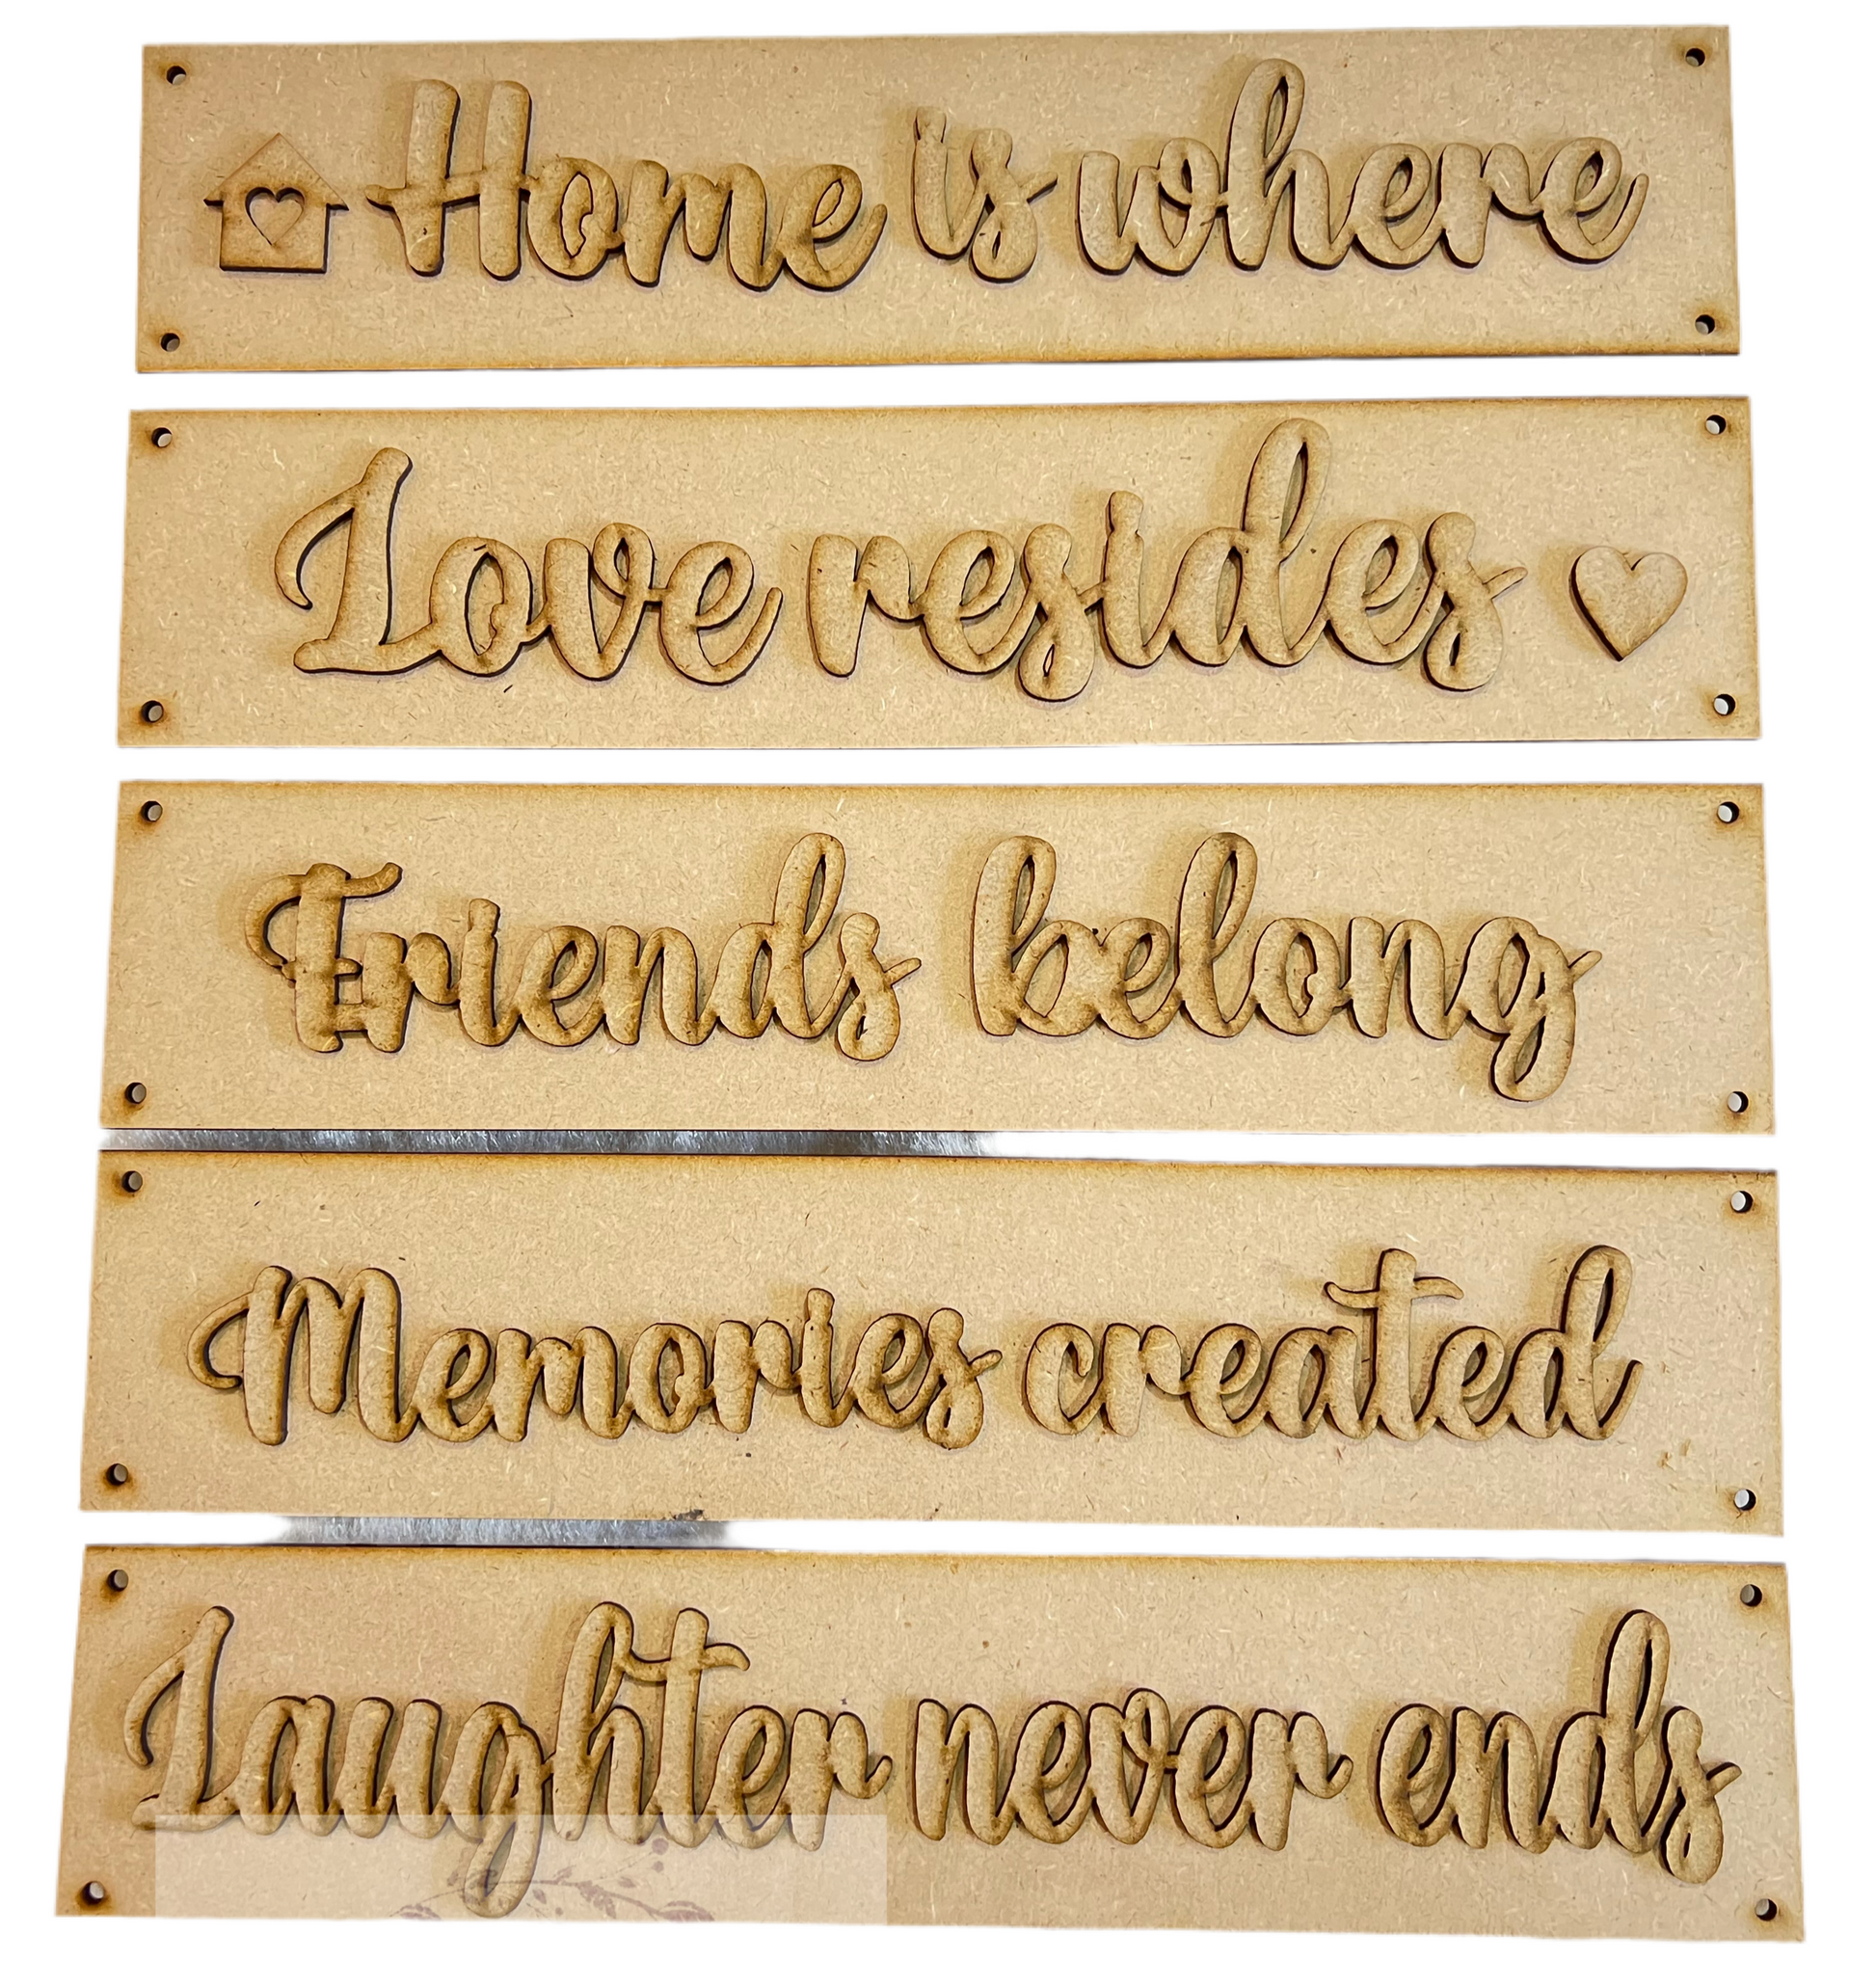 Home is where
Love resides
Friends belong
Memories created
Laughter never ends